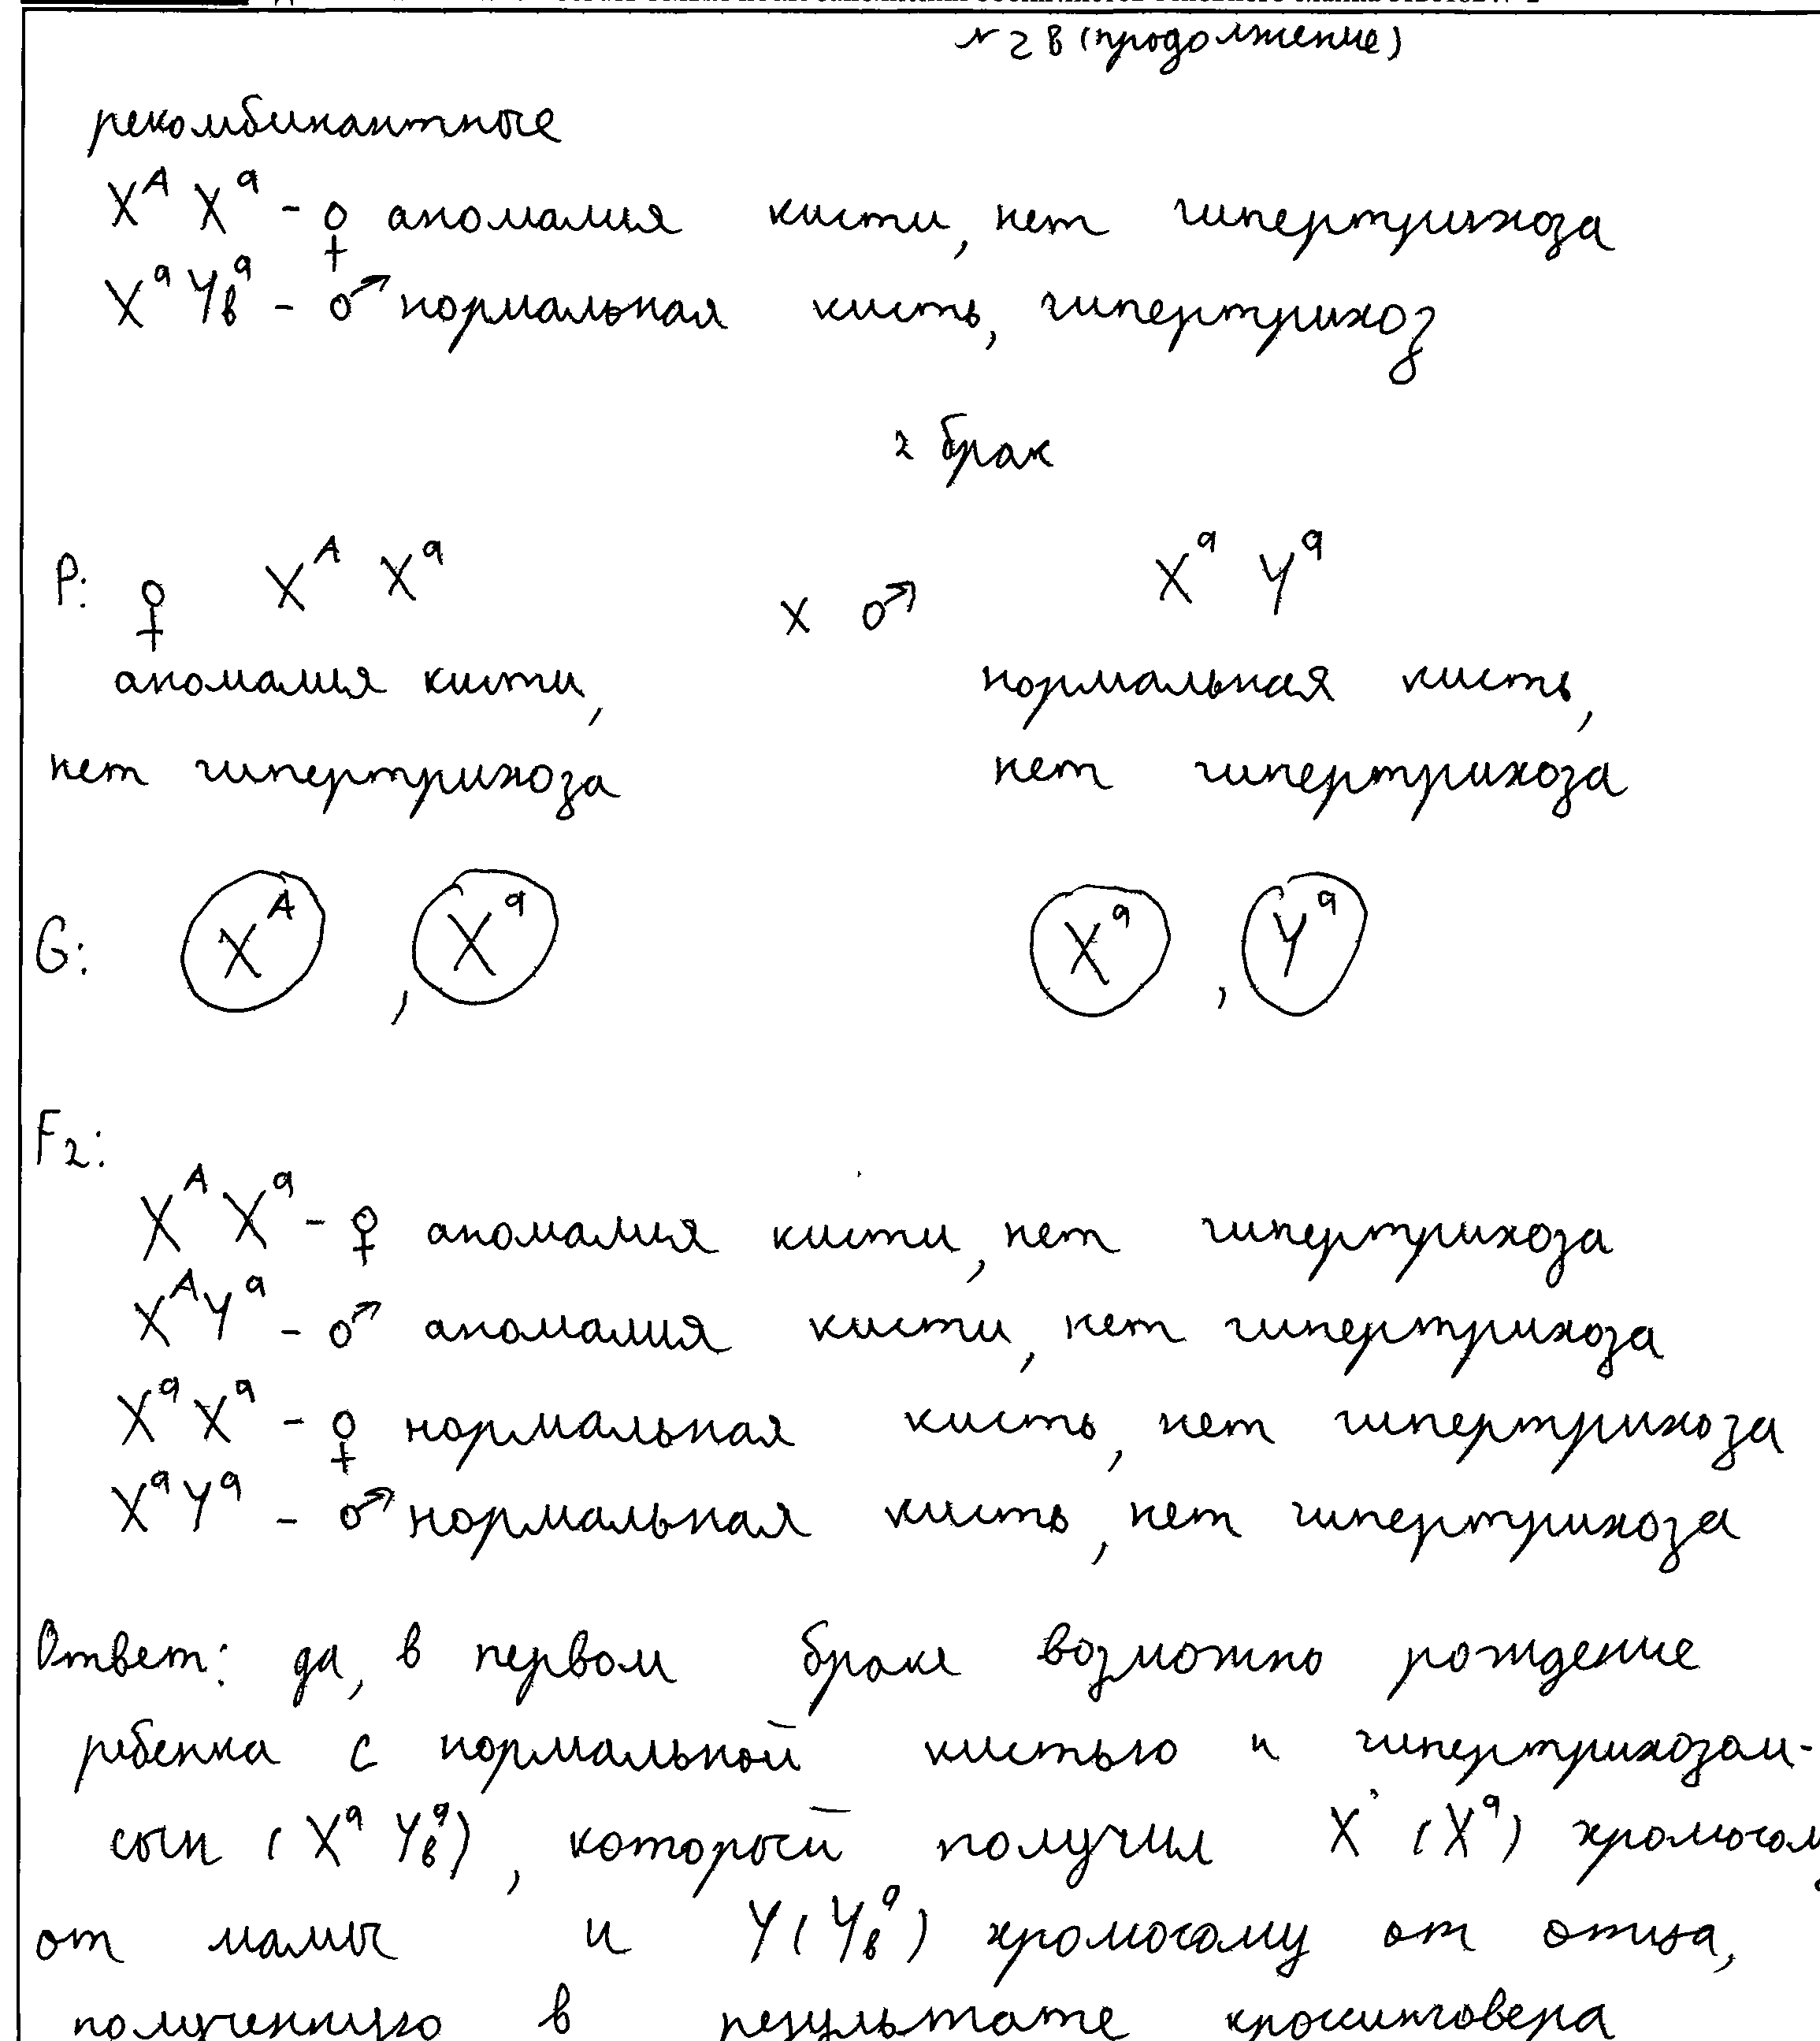 №28 (продолжение)
рекомбинантные
X^A X^a - ♀ аномалия кисти, нет гипертрихоза
X^a Y_в^a - ♂ нормальная кисть, гипертрихоз
2 брак
P: ♀ X^A X^a x ♂ X^a Y^a
аномалия кисти, нормальная кисть,
нет гипертрихоза нет гипертрихоза
G: X^A , X^a X^a , Y^a
F2:
X^A X^a - ♀ аномалия кисти, нет гипертрихоза
X^A Y^a - ♂ аномалия кисти, нет гипертрихоза
X^a X^a - ♀ нормальная кисть, нет гипертрихоза
X^a Y^a - ♂ нормальная кисть, нет гипертрихоза
Ответ: да, в первом браке возможно рождение
ребенка с нормальной кистью и гипертрихозом-
сын (X^a Y_в^a), который получил X (X^a) хромосому
от мамы и Y (Y_в^a) хромосому от отца,
полученную в результате кроссинговера